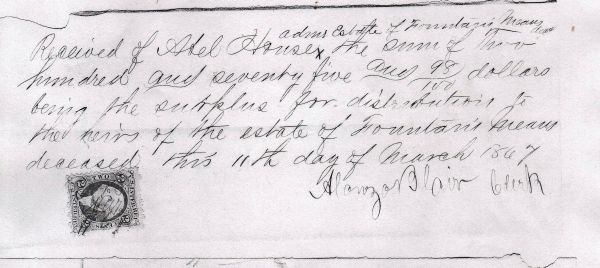 adms Estate of Fountain Means decd
Received of Abel House x the sum of two
hundred and seventy five and 98/100 dollars
being the surplus for distribution to
the heirs of the estate of Fountain Means
deceased, this 11th day of March 1867
Alonzo Blair Clerk
TWO